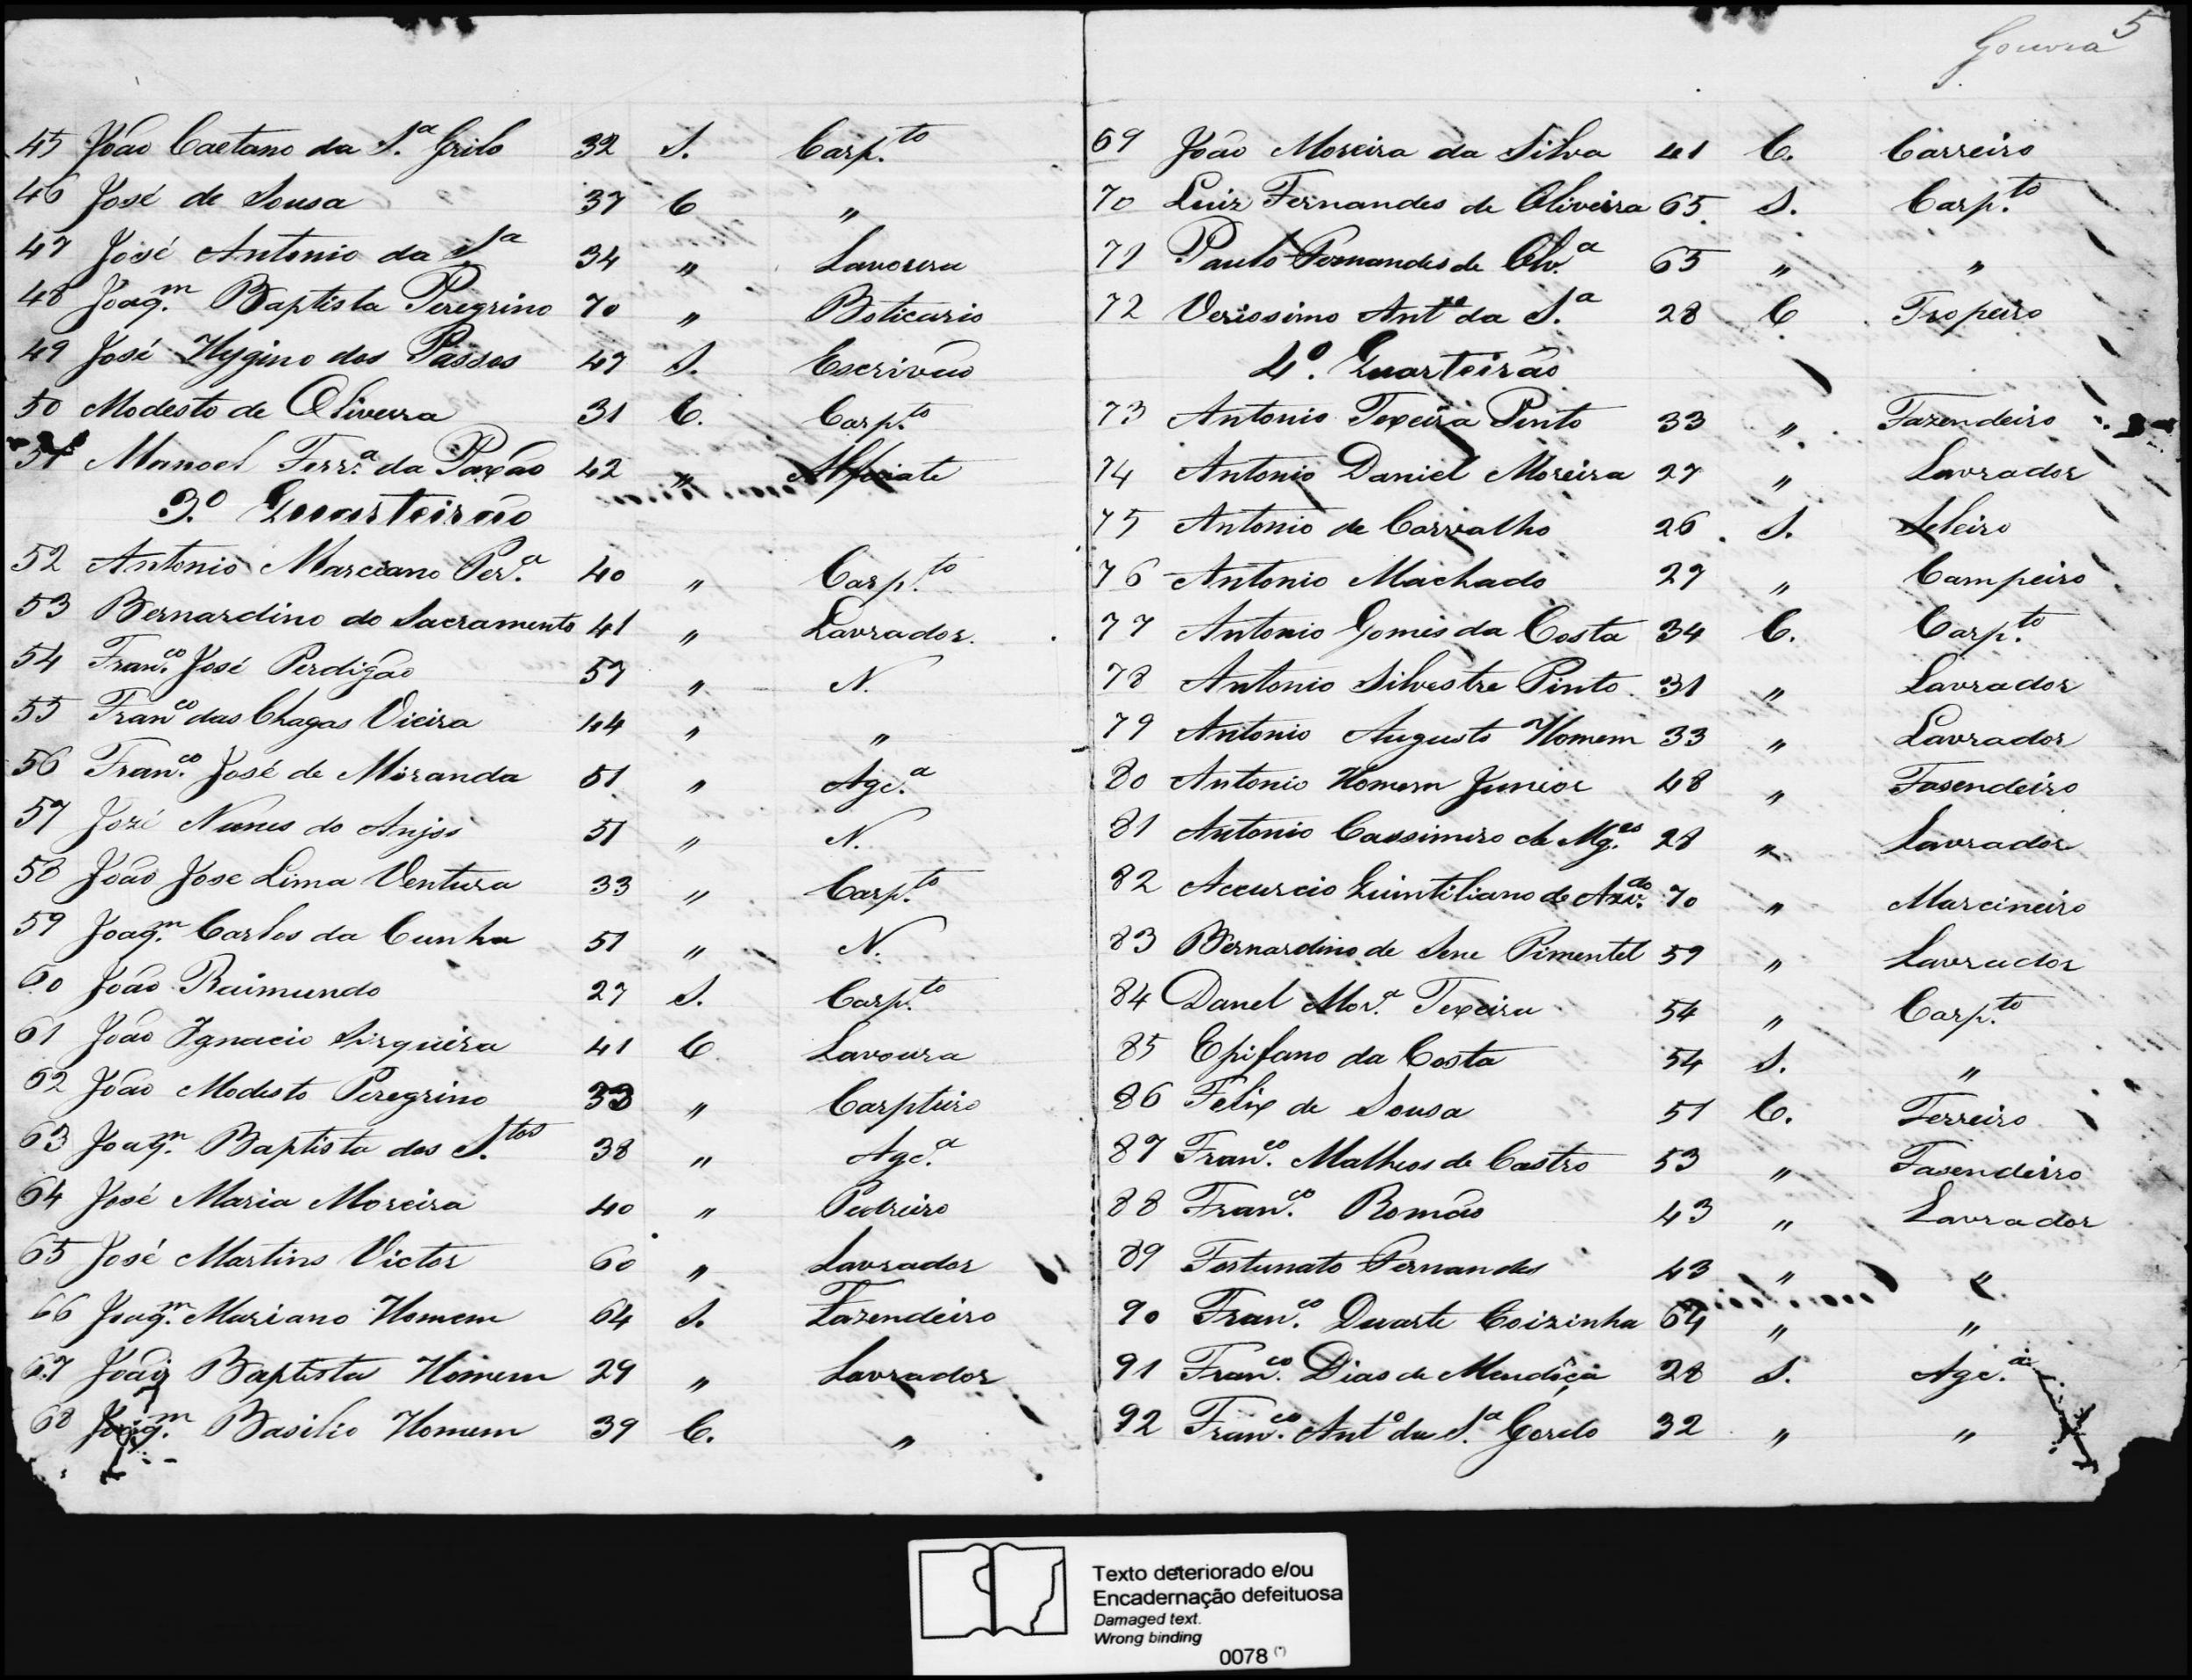 45 João Caetano da S.ª Grilo 32 S. Carp.to
46 José de Sousa 37 C "
47 José Antonio da S.ª 34 " Lavoura
48 Joaq.m Baptista Peregrino 70 " Boticario
49 José Hygino dos Passos 47 S. Escrivão
50 Modesto de Oliveira 31 C. Carp.to
51 Manoel Ferr.ª da Paxão 42 " Alfaiate
3.º Quarteirão
52 Antonio Marciano Per.ª 40 " Carp.to
53 Bernardino do Sacramento 41 " Lavrador.
54 Fran.co José Perdigão 57 " N.
55 Fran.co das Chagas Vieira 44 " "
56 Fran.co José de Miranda 51 " Agc.ª
57 Jozé Nunes do Anjos 51 " N.
58 João Jose Lima Ventura 33 " Carp.to
59 Joaq.m Carlos da Cunha 51 " N.
60 João Raimundo 27 S. Carp.to
61 João Ignacio Sirqueira 41 C Lavoura
62 João Modesto Peregrino 33 " Carpteiro
63 Joaq.m Baptista dos S.tos 38 " Agc.ª
64 José Maria Moreira 40 " Pedreiro
65 José Martins Victor 60 " Lavrador
66 Joaq.m Mariano Homem 64 S. Fazendeiro
67 Baptista Homem 29 " Lavrador
68 Joaq.m Basilio Homem 39 C. "
Gouvea 5
69 João Moreira da Silva 41 C. Carreiro
70 Luiz Fernandes de Oliveira 65 S. Carp.to
71 Paulo Fernandes de Olv.ª 65 " "
72 Verissimo Ant.º da S.ª 28 C Tropeiro
4.º Quarteirão
73 Antonio Texeira Pinto 33 " Fazendeiro
74 Antonio Daniel Moreira 27 " Lavrador
75 Antonio de Carvalho 26 S. Seleiro
76 Antonio Machado 27 " Campeiro
77 Antonio Gomes da Costa 34 C. Carp.to
78 Antonio Silvestre Pinto 31 " Lavrador
79 Antonio Augusto Homem 33 " Lavrador
80 Antonio Homem Junior 48 " Fasendeiro
81 Antonio Cassimiro de Mg.es 28 " Lavrador
82 Accurcio Quintiliano de Azv.do 70 " Marcineiro
83 Bernardino de Sene Pimentel 59 " Lavrador
84 Danel Mor.ª Texeira 54 " Carp.to
85 Epifano da Costa 54 S. "
86 Felix de Sousa 51 C. Ferreiro
87 Fran.co Matheos de Castro 53 " Fasendeiro
88 Fran.co Romão 43 " Lavrador
89 Fortunato Fernandes 43 " "
90 Fran.co Duarte Coizinha 64 " "
91 Fran.co Dias de Mendiça 28 S. Agc.ª
92 Fran.co Ant.º da S.ª Gordo 32 " "
Texto deteriorado e/ou
Encadernação defeituosa
Damaged text.
Wrong binding
0078 (*)